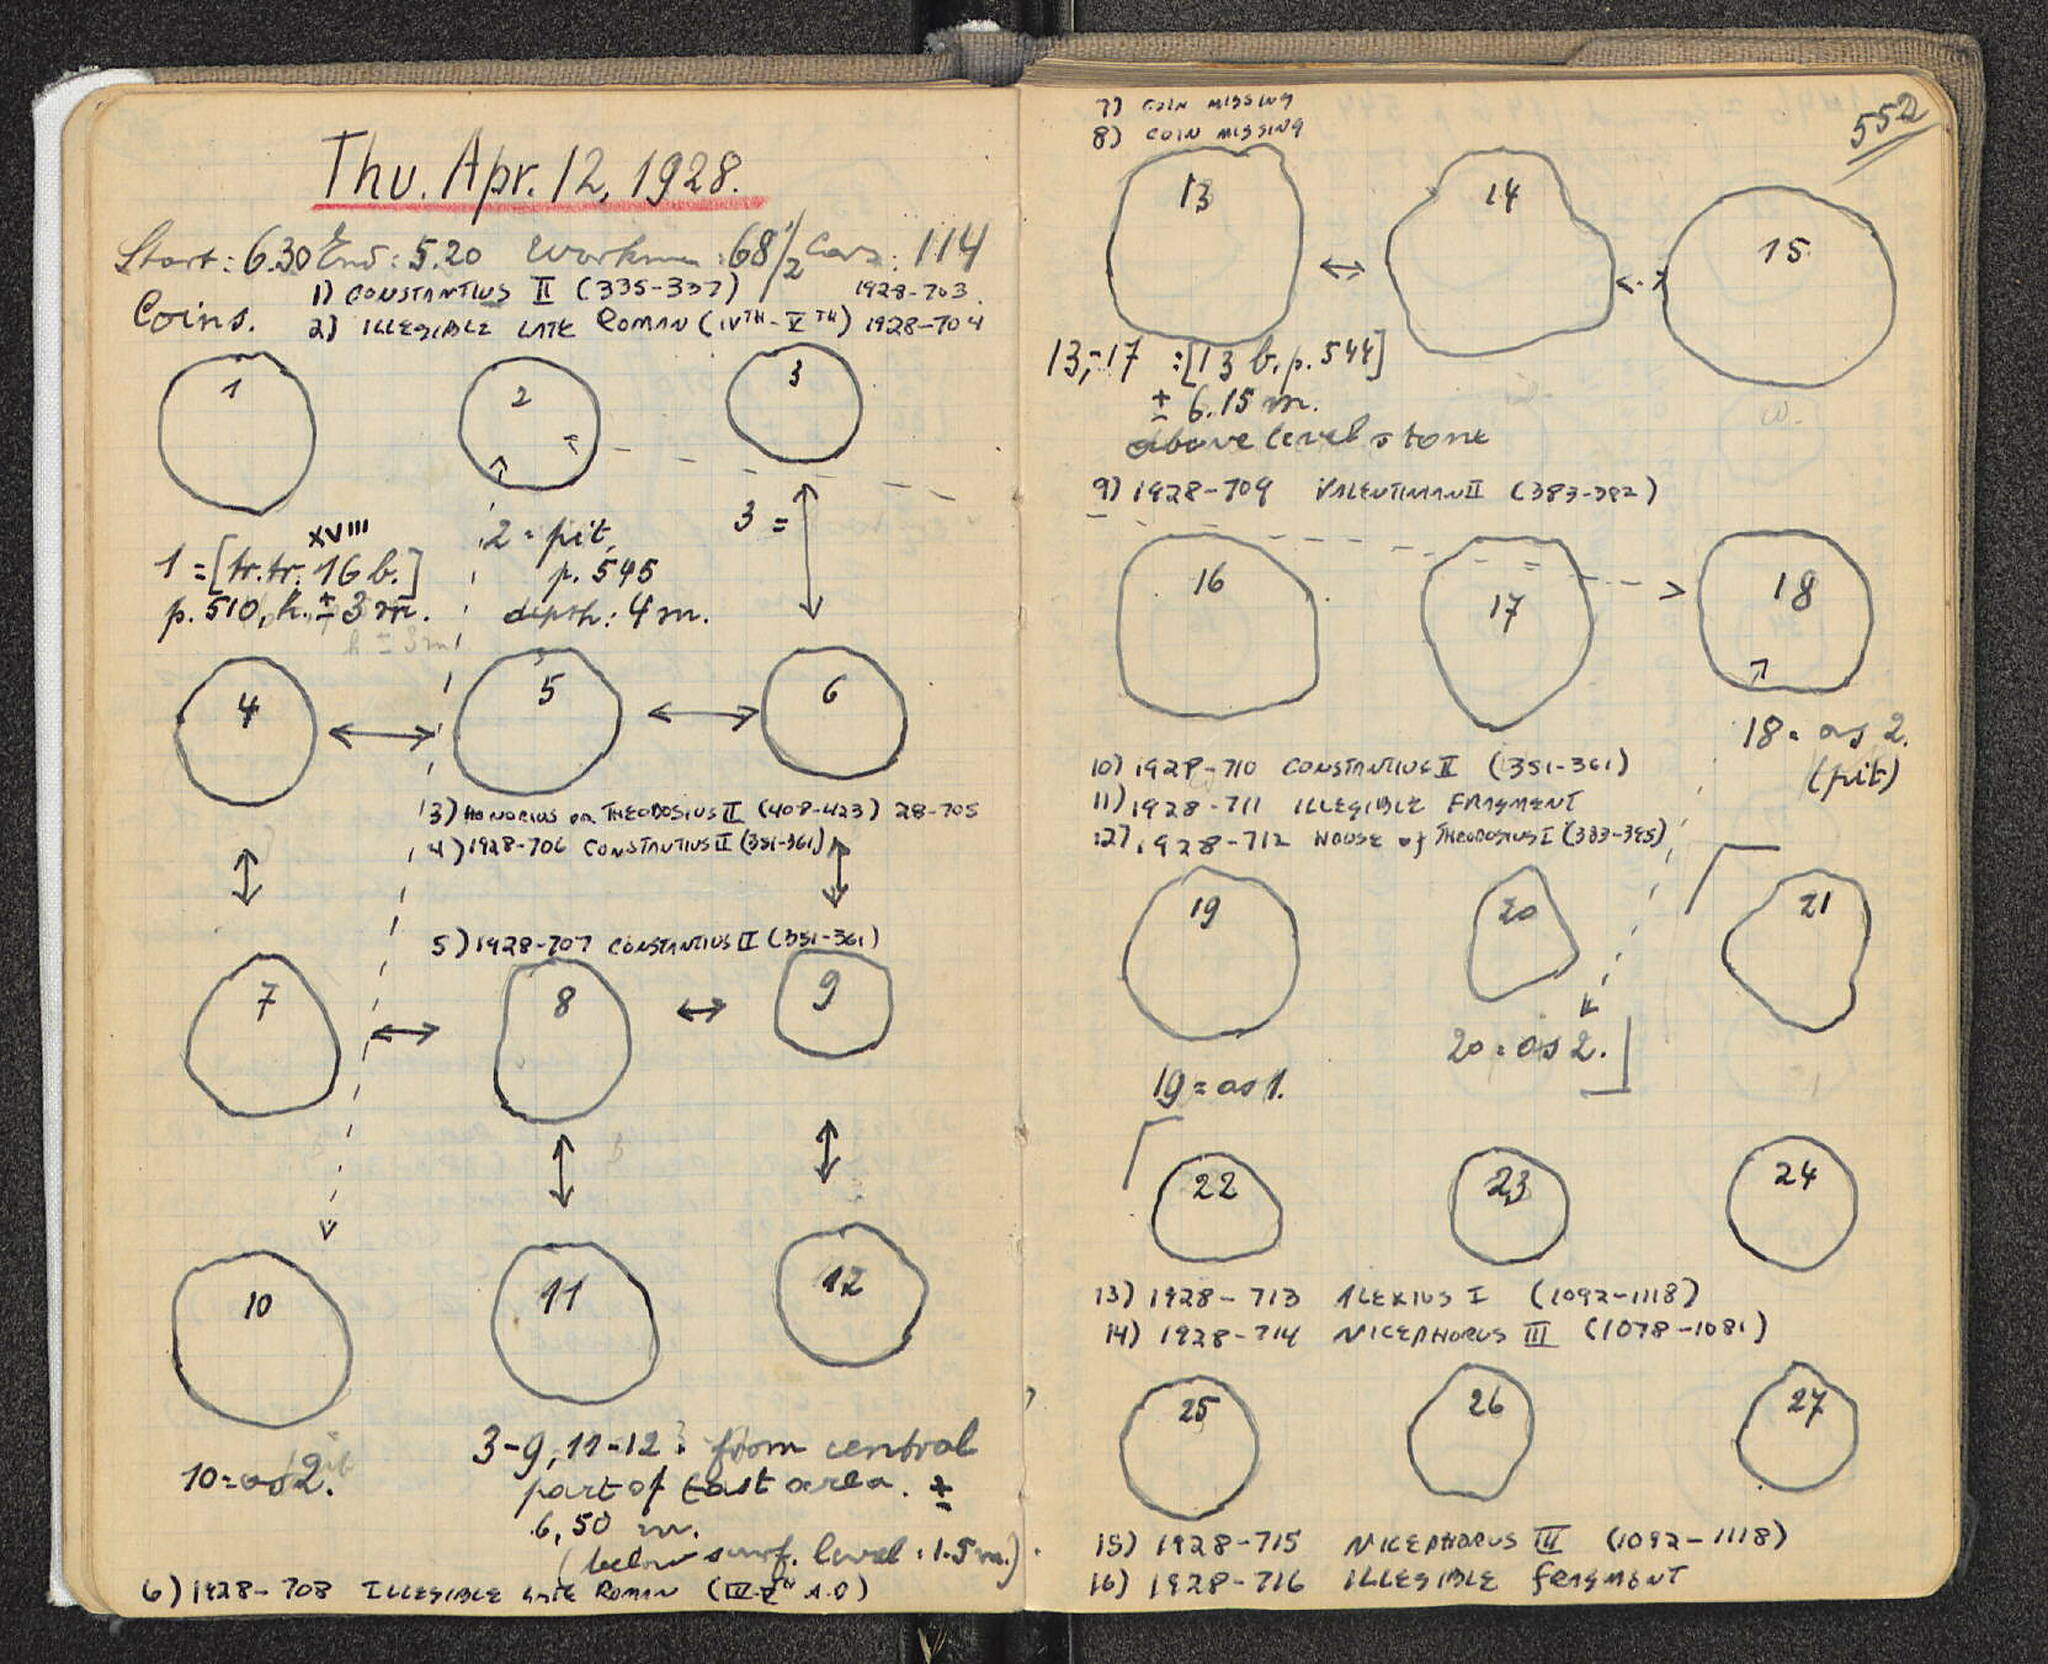 Thu. Apr. 12, 1928.
Start: 6.30 End: 5.20 Workmen: 68 1/2 Cars: 114
Coins.
1) CONSTANTIUS II (335-337) 1928-703.
2) ILLEGIBLE LATE ROMAN (IVTH-VTH) 1928-704
1 2 3
XVIII
1=[tr.tr. 16 b.]
p.510, h. ± 3 m.
h = 3m
2 = pit,
p. 545
depth: 4 m.
3 =
4 5 6
3) HONORIUS OR THEODOSIUS II (408-423) 28-705
4) 1928-706 CONSTANTIUS II (351-361)
5) 1928-707 CONSTANTIUS II (351-361)
7 8 9
10 11 12
10=as 2.
3-9, 11-12: from central
part of East area. ±
6,50 m.
(below surf. level: 1.5 m.).
6) 1928-708 ILLEGIBLE LATE ROMAN (IV-VTH A.D)
552
7) COIN MISSING
8) COIN MISSING
13 14 15
13,-17 :[13 b. p. 544]
± 6.15 m.
above level stone
9) 1928-709 VALENTINIAN II (383-392)
16 17 18
18= as 2.
(pit)
10) 1928-710 CONSTANTIUS II (351-361)
11) 1928-711 ILLEGIBLE FRAGMENT
12) 1928-712 HOUSE of THEODOSIUS I (383-395)
19 20 21
20=as 2.
19=as 1.
22 23 24
13) 1928-713 ALEXIUS I (1092-1118)
14) 1928-714 NICEPHORUS III (1078-1081)
25 26 27
15) 1928-715 NICEPHORUS III (1092-1118)
16) 1928-716 ILLEGIBLE FRAGMENT